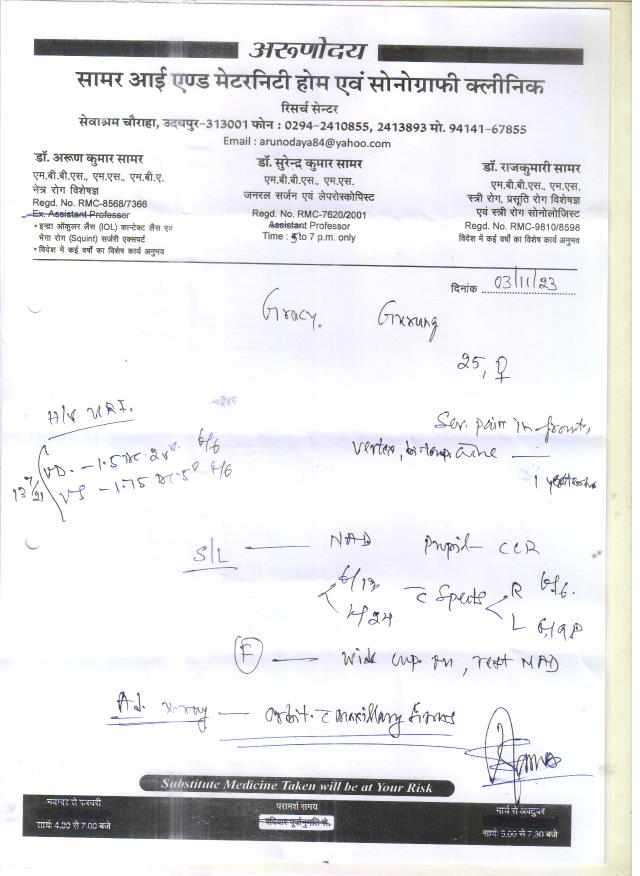 अरूणोदय
सामर आई एण्ड मेटरनिटी होम एवं सोनोग्राफी क्लीनिक
रिसर्च सेन्टर
सेवाश्रम चौराहा, उदयपुर-313001 फोन : 0294-2410855, 2413893 मो. 94141-67855
Email : arunodaya84@yahoo.com
डॉ. अरूण कुमार सामर
एम.बी.बी.एस., एम.एस., एम.बी.ए.
नेत्र रोग विशेषज्ञ
Regd. No. RMC-8568/7366
Ex. Assistant Professor
• इन्ट्रा ऑकुलर लैंस (IOL) कान्टेक्ट लैंस एवं
भेगा रोग (Squint) सर्जरी एक्सपर्ट
• विदेश में कई वर्षों का विशेष कार्य अनुभव
डॉ. सुरेन्द्र कुमार सामर
एम.बी.बी.एस., एम.एस.
जनरल सर्जन एवं लेपरोस्कोपिस्ट
Regd. No. RMC-7620/2001
Assistant Professor
Time : 5 to 7 p.m. only
डॉ. राजकुमारी सामर
एम.बी.बी.एस., एम.एस.
स्त्री रोग, प्रसूति रोग विशेषज्ञ
एवं स्त्री रोग सोनोलोजिस्ट
Regd. No. RMC-9810/8598
विदेश में कई वर्षों का विशेष कार्य अनुभव
दिनांक 03/11/23
Gracy. Gurung
25, ♀
Sev. pain in front,
vertex, ache
1 year
VD. -1.5 6/6
VS -1.75 6/6
S/L NAD Pupil CCR
6/12 c Spects R 6/6.
6/24 L 6/9P
F Wide cup , rest NAD
Ad. X-ray orbit c maxillary sinus
Substitute Medicine Taken will be at Your Risk
नवम्बर से फरवरी
सायं: 4.30 से 7.00 बजे
परामर्श समय
रविवार पूर्वानुमति से.
मार्च से अक्टूबर
सायं: 5.00 से 7.30 बजे